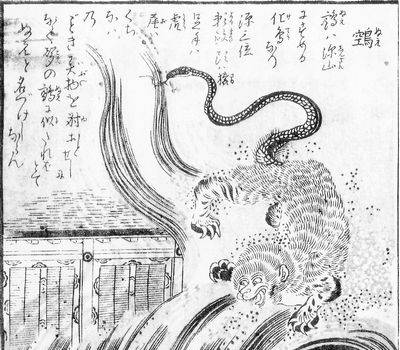 鵼 ぬえ
鵼ハ深山
にすめる
化鳥なり
源三位
頼政頭ハ猿
足手ハ
虎
尾ハ
くち
なハ
の
ごとき異物を射おとせしに
なく声の鵼に似たれバとて
ぬえと名づけしならん